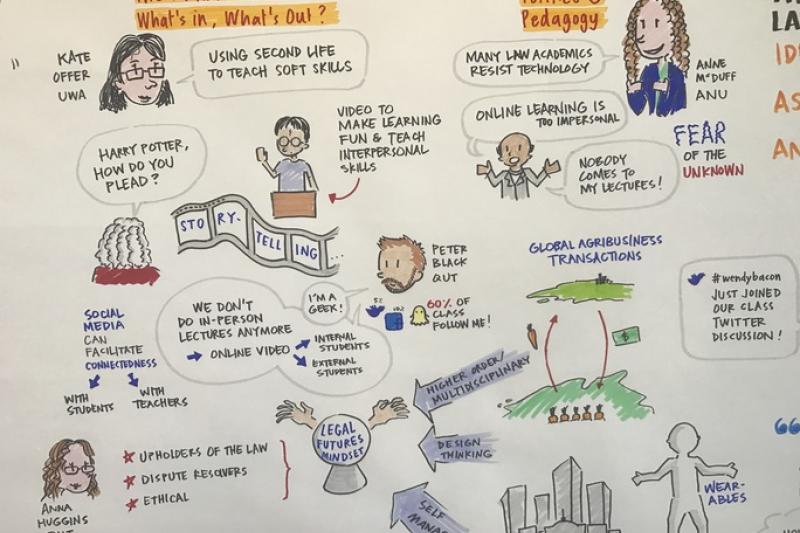 What's in, What's Out?
KATE
OFFER
UWA
USING SECOND LIFE
TO TEACH SOFT SKILLS
HARRY POTTER,
HOW DO YOU
PLEAD?
VIDEO TO
MAKE LEARNING
FUN & TEACH
INTERPERSONAL
SKILLS
STORY-
TELLING...
PETER
BLACK
QUT
I'M A
GEEK!
60% OF
CLASS
FOLLOW ME!
WE DON'T
DO IN-PERSON
LECTURES ANYMORE
ONLINE VIDEO
INTERNAL
STUDENTS
EXTERNAL
STUDENTS
SOCIAL
MEDIA
CAN
FACILITATE
CONNECTEDNESS
WITH
STUDENTS
WITH
TEACHERS
ANNA
HUGGINS
UPHOLDERS OF THE LAW
DISPUTE RESOLVERS
ETHICAL
LEGAL
FUTURES
MINDSET
HIGHER ORDER/
MULTIDISCIPLINARY
DESIGN
THINKING
SELF
Pedagogy
MANY LAW ACADEMICS
RESIST TECHNOLOGY
ANNE
McDUFF
ANU
ONLINE LEARNING IS
TOO IMPERSONAL
NOBODY
COMES TO
MY LECTURES!
FEAR
OF THE
UNKNOWN
GLOBAL AGRIBUSINESS
TRANSACTIONS
$
#wendybacon
JUST JOINED
OUR CLASS
TWITTER
DISCUSSION!
WEAR-
ABLES